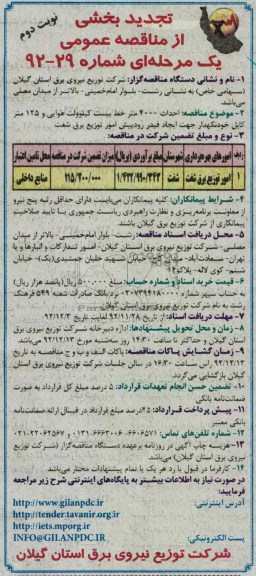 نوبت دوم
تجدید بخشی
از مناقصه عمومی
یک مرحله‌ای شماره ۲۹-۹۲
۱- نام و نشانی دستگاه مناقصه‌گزار: شرکت توزیع نیروی برق استان گیلان
(سهامی خاص) به نشانی رشت- بلوار امام‌خمینی- بالاتر از میدان مصلی
می‌باشد
۲- موضوع مناقصه: احداث ۴۰۰۰ متر خط بیست کیلوولت هوایی و ۱۲۵ متر
کابل خودنگهدار جهت ایجاد فیدر رودپیش امور توزیع برق شفت
۳- نوع و مبلغ تضمین شرکت در مناقصه:
ردیف امورهای بهره‌برداری شهرستان مبلغ برآوردی (بریال) میزان تضمین شرکت در مناقصه محل تامین اعتبار
۱ امور توزیع برق شفت شفت ۱/۴۲۲/۹۹۰/۳۴۳ ۱۱۵/۲۰۰/۰۰۰ منابع داخلی
۴- شرایط پیمانکاران: کلیه پیمانکاران می‌بایست دارای حداقل رتبه پنج نیرو
از معاونت برنامه‌ریزی و نظارت راهبردی ریاست جمهوری یا تایید صلاحیت
پیمانکاری از شرکت توزیع برق گیلان باشند
۵- محل دریافت اسناد مناقصه: رشت- بلوار امام‌خمینی- بالاتر از میدان
مصلی- شرکت توزیع نیروی برق استان گیلان- امور تدارکات و انبارها و یا
تهران- سعادت‌آباد- میدان کاج- خیابان شهید خلیلیان جمشیدی(یک)- خیابان
شبنم- کوی لاله- پلاک
۶- قیمت خرید اسناد و شماره حساب: مبلغ ۵۰۰,۰۰۰ ریال (پانصد هزار ریال)
به حساب سپهر شماره نزد بانک صادرات شعبه ۵۴۹ فرهنگ
رشت به نام شرکت توزیع نیروی برق استان گیلان
۷- مهلت دریافت اسناد: از تاریخ ۹۲/۱۱/۲۸ لغایت تاریخ ۹۲/۱۲/۳
۸- زمان و محل تحویل پیشنهادها: اداره دبیرخانه شرکت توزیع نیروی برق
استان گیلان و حداکثر تا ساعت ۱۴:۳۰ روز سه‌شنبه مورخ ۹۲/۱۲/۱۳ می‌باشد
۹- زمان گشایش پاکات مناقصه: پاکات الف و ب و ج مناقصه به تاریخ
۹۲/۱۲/۱۴ راس ساعت ۱۶:۳۰ در سالن جلسات شرکت توزیع نیروی برق استان
گیلان بازگشایی می‌گردد
۱۰- تضمین حسن انجام تعهدات قرارداد: ۵ درصد مبلغ کل قرارداد به صورت
ضمانت‌نامه بانکی
۱۱- پیش پرداخت قرارداد: ۲۵ درصد مبلغ قرارداد در قبال ارائه ضمانت‌نامه
بانکی معتبر
۱۲- شماره تلفن‌های تماس:
۱۳- هزینه چاپ آگهی در روزنامه برعهده دستگاه مناقصه‌گزار (شرکت توزیع
نیروی برق استان گیلان) می‌باشد.
۱۴- کارفرما در قبول یا رد هر یک یا تمام پیشنهادات مختار می‌باشد
در صورت نیاز به اطلاعات بیشتر به پایگاه‌های اینترنتی شرح زیر مراجعه
فرمایید:
آدرس اینترنتی: http://www.gilanpdc.ir
http://tender.tavanir.org.ir
http://iets.mporg.ir
پست الکترونیکی: INFO@GILANPDC.IR
شرکت توزیع نیروی برق استان گیلان